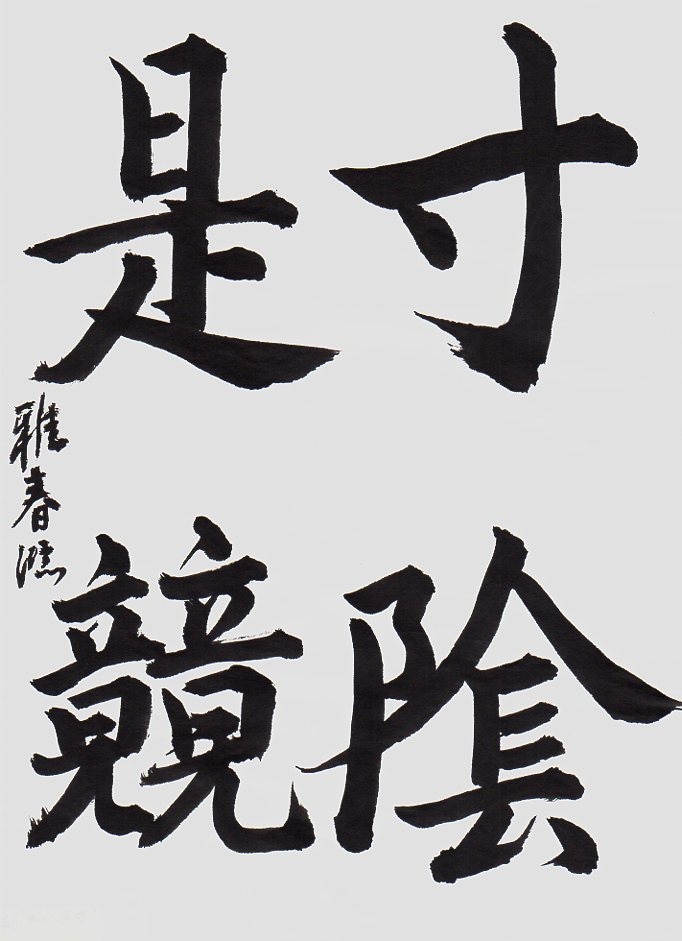 寸陰
是競
雅春